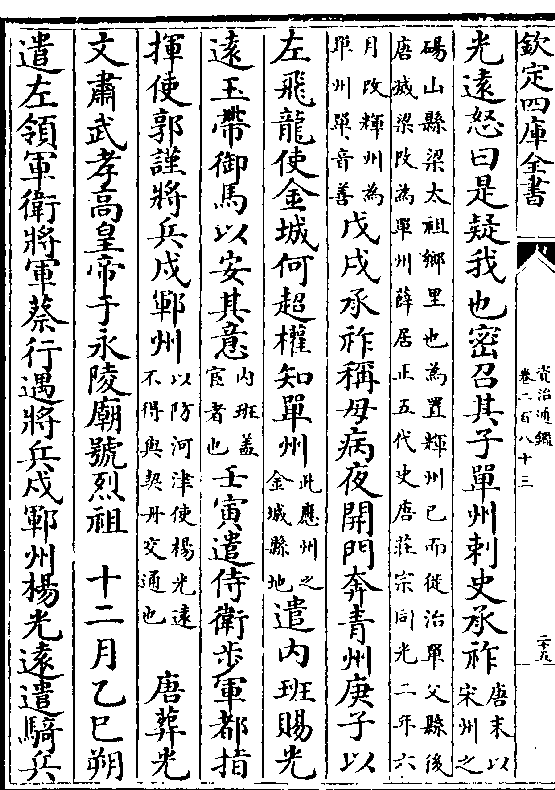 欽定四庫全書
資治通鑑
卷二百八十三
二十九
光遠怒曰是疑我也密召其子單州刺史承祚唐末以宋州之
碭山縣梁太祖鄉里也為置輝州已而徙治單父縣後
唐滅梁改為單州薛居正五代史唐莊宗同光二年六
月改輝州為單州單音善戊戌承祚稱母病夜開門奔青州庚子以
左飛龍使金城何超權知單州此應州之金城縣地遣內班賜光
遠玉帶御馬以安其意內班蓋宦者也壬寅遣侍衛步軍都指
揮使郭謹將兵戍鄆州以防河津使楊光遠不得與契丹交通也唐葬光
文肅武孝高皇帝于永陵廟號烈祖十二月乙巳朔
遣左領軍衛將軍蔡行遇將兵戍鄆州楊光遠遣騎兵